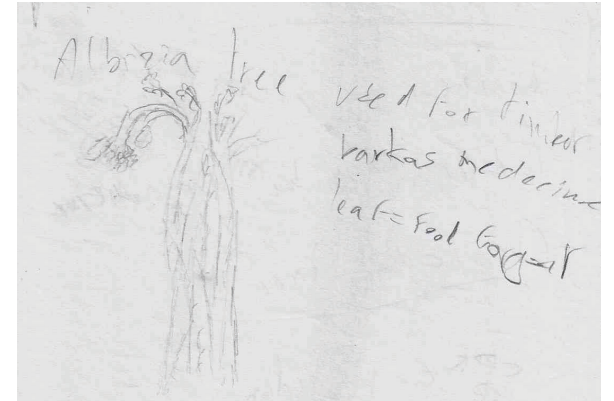 Albizia tree
used for timber
bark as medecine
leaf = food for goat